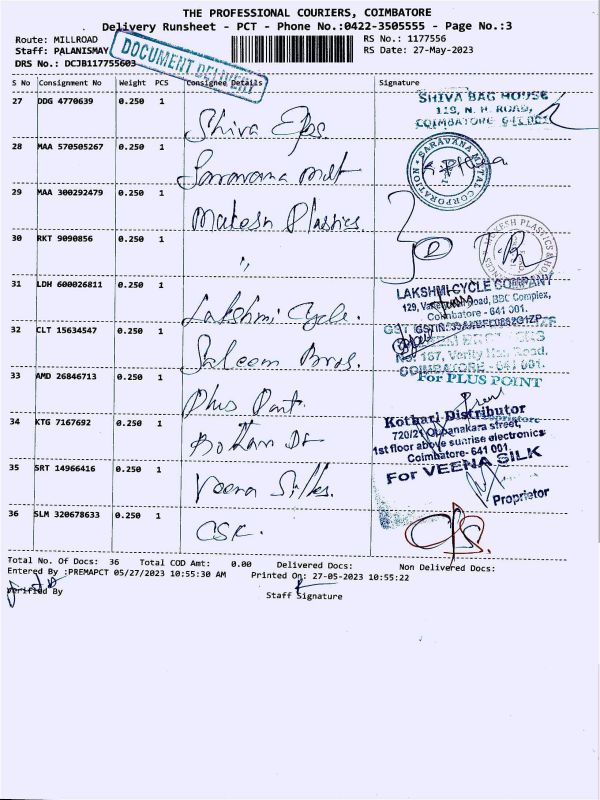 THE PROFESSIONAL COURIERS, COIMBATORE
Delivery Runsheet - PCT - Phone No.:0422-3505555 - Page No.:3
Route: MILLROAD
RS No.: 1177556
Staff: PALANISMAY
RS Date: 27-May-2023
DRS No.: DCJB117755603
DOCUMENT DELIVERY
S No Consignment No Weight PCS Consignee Details Signature
27 DDG 4770639 0.250 1 Shiva
SHIVA BAG HOUSE
N. H. ROAD,
COIMBATORE
28 MAA 570505267 0.250 1 Saravana
SARAVANA METAL CORPORATION
29 MAA 300292479 0.250 1 Makesh Plastics.
30 RKT 9090856 0.250 1 "
31 LDH 600026811 0.250 1 Lakshmi Cycle.
LAKSHMI CYCLE COMPANY
Road, BBC Complex,
Coimbatore - 641 001.
32 CLT 15634547 0.250 1 Saleem Bros.
No. 167, Variety Hall Road.
COIMBATORE - 641 001.
33 AMD 26846713 0.250 1 Plus Point
For PLUS POINT
34 KTG 7167692 0.250 1
Kothari Distributor
street,
1st floor above sunrise electronics
Coimbatore- 641 001
35 SRT 14966416 0.250 1 Veena Silks.
For VEENA SILK
Proprietor
36 SLM 320678633 0.250 1 CSK.
Total No. Of Docs: 36 Total COD Amt: 0.00 Delivered Docs: Non Delivered Docs:
Entered By :PREMAPCT 05/27/2023 10:55:30 AM Printed On: 27-05-2023 10:55:22
Verified By
Staff Signature